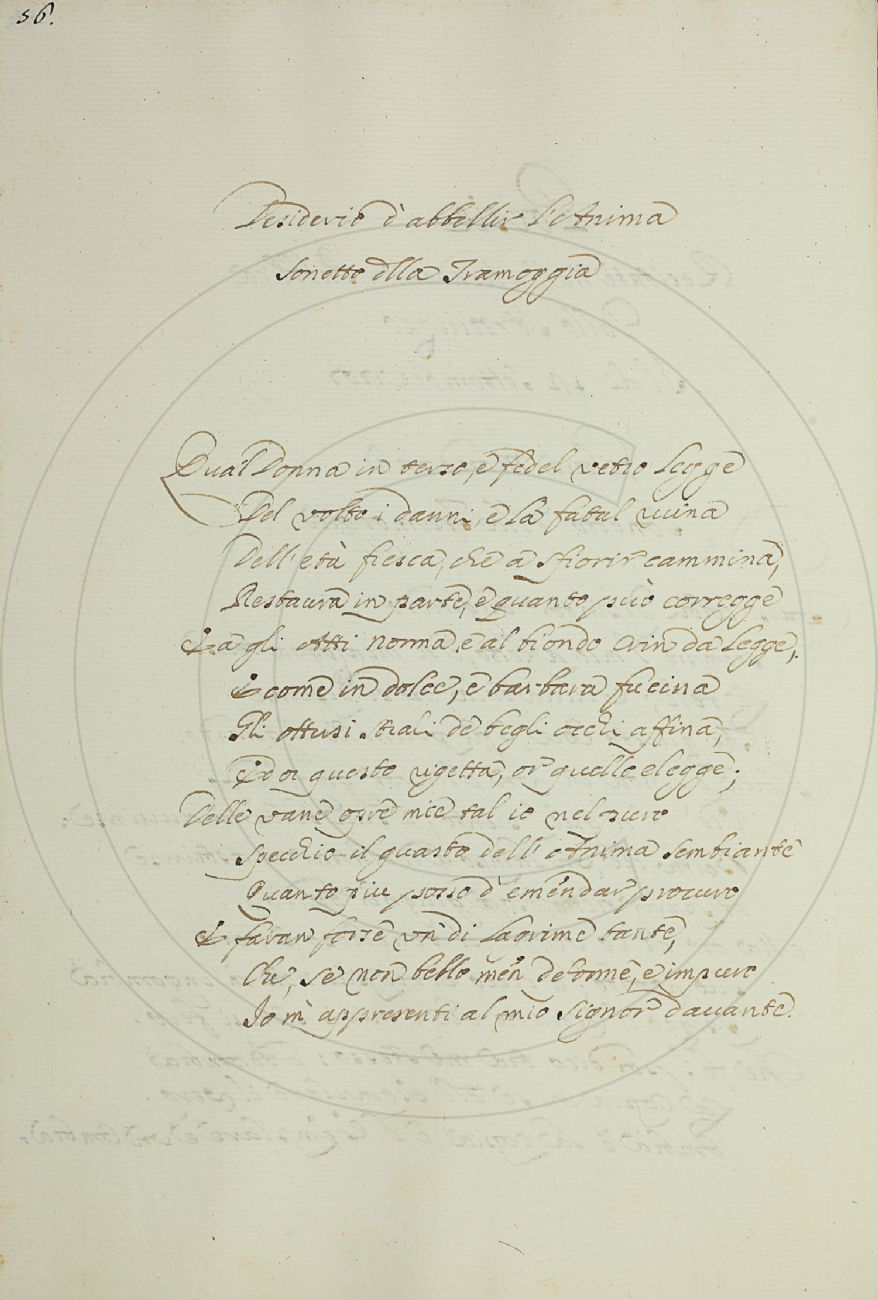 56.
Desiderio d'abbellir l'Anima
Sonetto dlla Tramoggia
Qual Donna in terso, e fedel vetro legge
Del volto i danni, e la fatal ruina
Dell'età fresca, che a sfiorir cammina,
Restaura in parte, e quanto può corregge
Dà gli Atti norma, e al biondo crin da legge,
E come in dolce, e barbara fucina
Gli ottusi strali de begli occhi affina,
Ed or questo rigetta, or quello elegge;
Delle vane opre mie tal io nel puro
Specchio il guasto dell'Anima sembiante
Quanto piu posso d'emendar procuro
E faran forse un di lagrime tante,
Che, se non bello, men deforme, e impuro
Io m'appresenti al mio Signor davante.